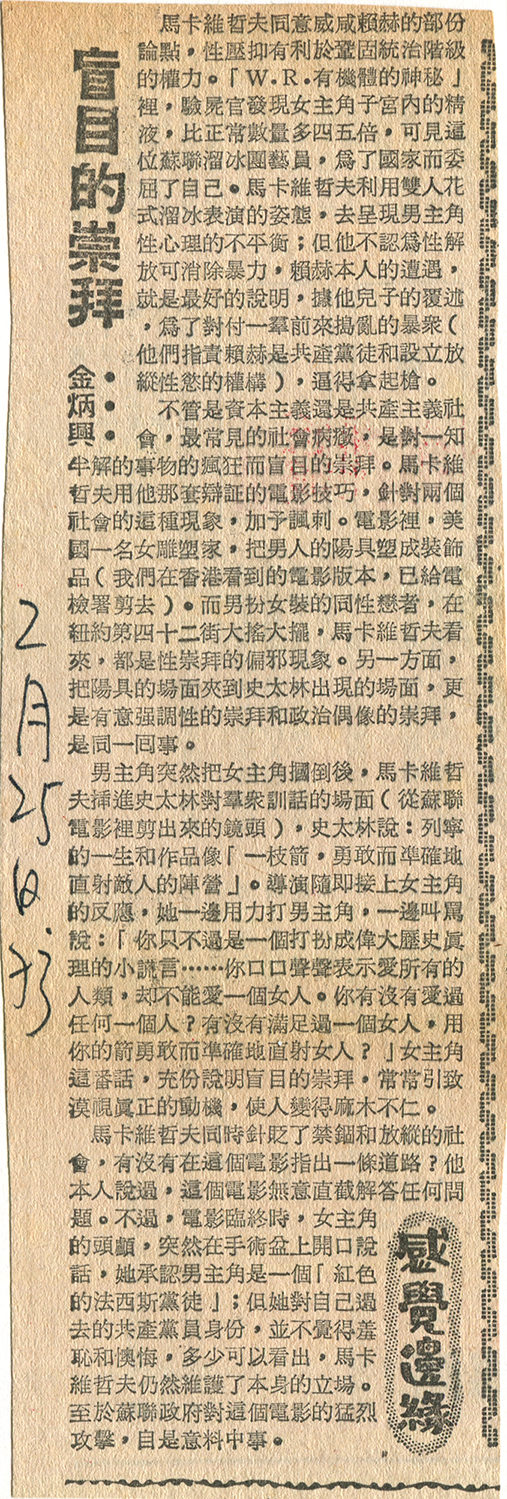 盲目的崇拜
金炳興
感覺邊緣
馬卡維哲夫同意威咸賴赫的部份
論點，性壓抑有利於鞏固統治階級
的權力。「W.R.有機體的神秘」
裡，驗屍官發現女主角子宮內的精
液，比正常數量多四五倍，可見這
位蘇聯溜冰團藝員，爲了國家而委
屈了自己。馬卡維哲夫利用雙人花
式溜冰表演的姿態，去呈現男主角
性心理的不平衡；但他不認爲性解
放可消除暴力，賴赫本人的遭遇，
就是最好的說明，據他兒子的覆述
，爲了對付一羣前來搗亂的暴衆（
他們指責賴赫是共產黨徒和設立放
縱性慾的權構），逼得拿起槍。
不管是資本主義還是共產主義社
會，最常見的社會病徵，是對一知
半解的事物的瘋狂而盲目的崇拜。馬卡維
哲夫用他那套辯証的電影技巧，針對兩個
社會的這種現象，加予諷刺。電影裡，美
國一名女雕塑家，把男人的陽具塑成裝飾
品（我們在香港看到的電影版本，已給電
檢署剪去）。而男扮女裝的同性戀者，在
紐約第四十二街大搖大擺，馬卡維哲夫看
來，都是性崇拜的偏邪現象。另一方面，
把陽具的場面夾到史太林出現的場面，更
是有意强調性的崇拜和政治偶像的崇拜，
是同一囘事。
男主角突然把女主角摑倒後，馬卡維哲
夫挿進史太林對羣衆訓話的場面（從蘇聯
電影裡剪出來的鏡頭），史太林說：列寧
的一生和作品像「一枝箭，勇敢而準確地
直射敵人的陣營」。導演隨即接上女主角
的反應，她一邊用力打男主角，一邊叫罵
說：「你只不過是一個打扮成偉大歷史眞
理的小謊言……你口口聲聲表示愛所有的
人類，却不能愛一個女人。你有沒有愛過
任何一個人？有沒有滿足過一個女人，用
你的箭勇敢而準確地直射女人？」女主角
這番話，充份說明盲目的崇拜，常常引致
漠視眞正的動機，使人變得麻木不仁。
馬卡維哲夫同時針貶了禁錮和放縱的社
會，有沒有在這個電影指出一條道路？他
本人說過，這個電影無意直截解答任何問
題。不過，電影臨終時，女主角
的頭顱，突然在手術盆上開口說
話，她承認男主角是一個「紅色
的法西斯黨徒」；但她對自己過
去的共產黨員身份，並不覺得羞
恥和懊悔，多少可以看出，馬卡
維哲夫仍然維護了本身的立場。
至於蘇聯政府對這個電影的猛烈
攻擊，自是意料中事。
2月25日.73